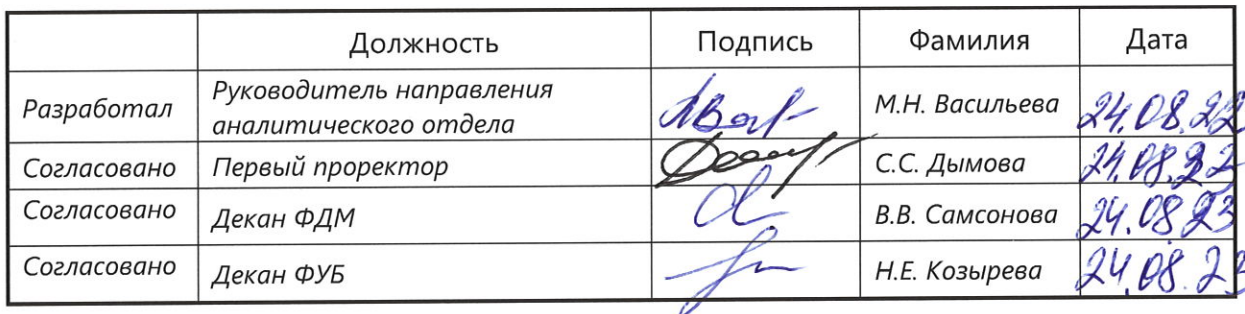 Должность Подпись Фамилия Дата
Разработал Руководитель направления аналитического отдела М.Н. Васильева
Согласовано Первый проректор С.С. Дымова
Согласовано Декан ФДМ В.В. Самсонова 24.08.23
Согласовано Декан ФУБ Н.Е. Козырева 24.08.23